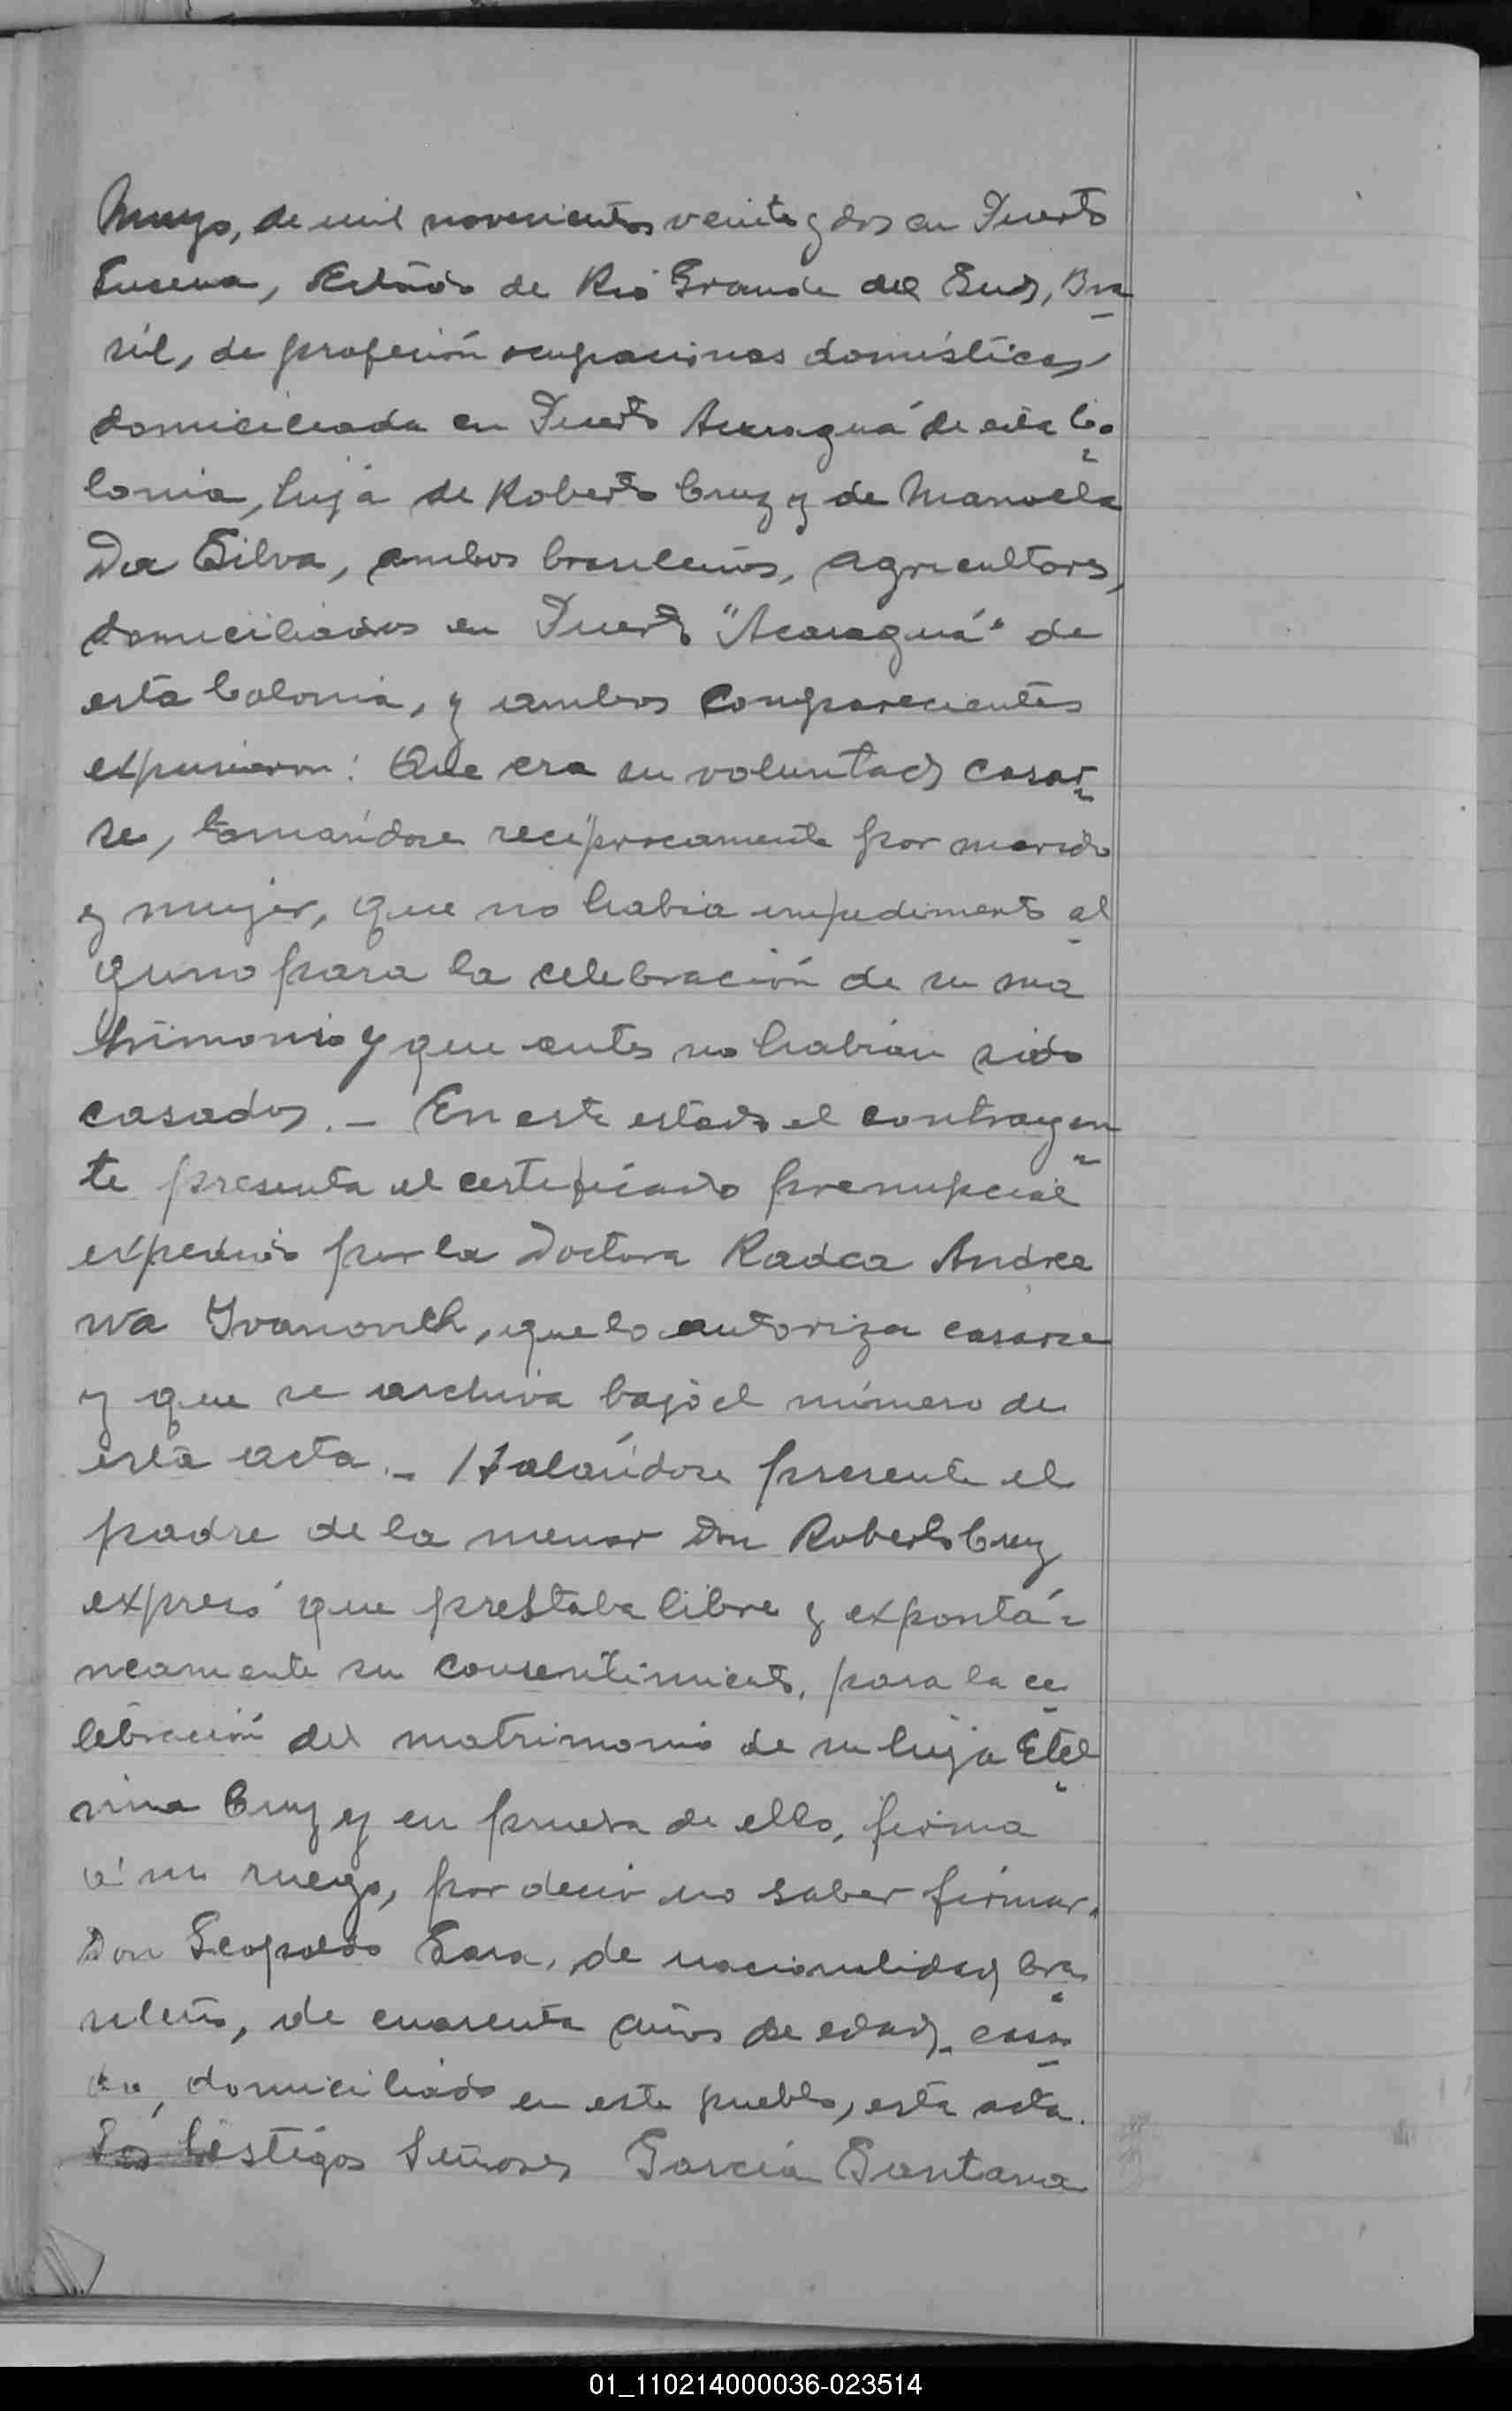 Mayo, de mil novecientos veinte y dos en Puerto
Lucena, Estado de Rio Grande del Sud, Bra
sil, de profesión ocupaciones domésticas,
domiciliada en Puerto Acaraguá de esta Co
lonia, hija de Roberto Cruz y de Manoela
Da Silva, ambos brasileños, agricultores,
domiciliados en Puerto "Acaraguá" de
esta Colonia, y ambos comparecientes
expusieron: Que era su voluntad casar
se, tomándose recíprocamente por marido
y mujer, que no habia impedimento al
guno para la celebración de su ma
trimonio y que antes no habían sido
casados. - En este estado el contrayen
te presenta el certificado prenupcial
expedido por la Doctora Radca Andree
wa Ivanovich, que lo autoriza casarse
y que se archiva bajo el número de
esta acta. - Halándose presente el
padre de la menor Don Roberto Cruz
expresó que prestaba libre y expontá
neamente su consentimiento, para la ce
lebración del matrimonio de su hija Etel
vina Cruz y en prueba de ello, firma
á su ruego, por decir no saber firmar,
Don Leopoldo Lara, de nacionalidad bra
sileño, de cuarenta años de edad, casa
do, domiciliado en este pueblo, esta acta.
Los testigos Señores García Santana
01_110214000036-023514